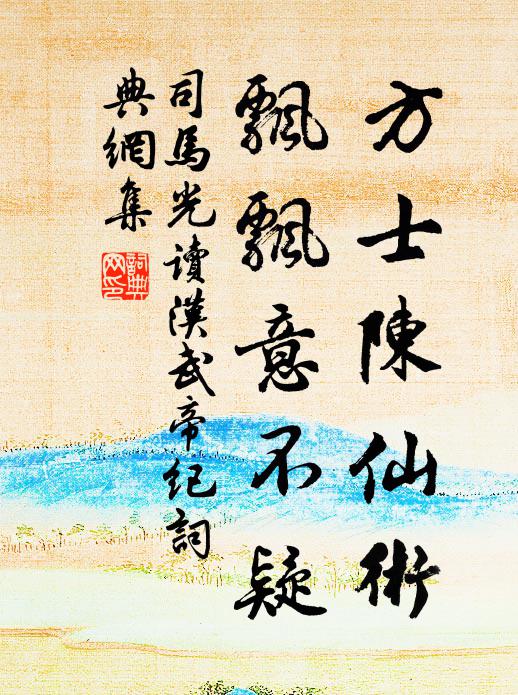 方士陳仙術
飄飄意不疑
司馬光讀漢武帝紀詞
典網集
詞典
网印